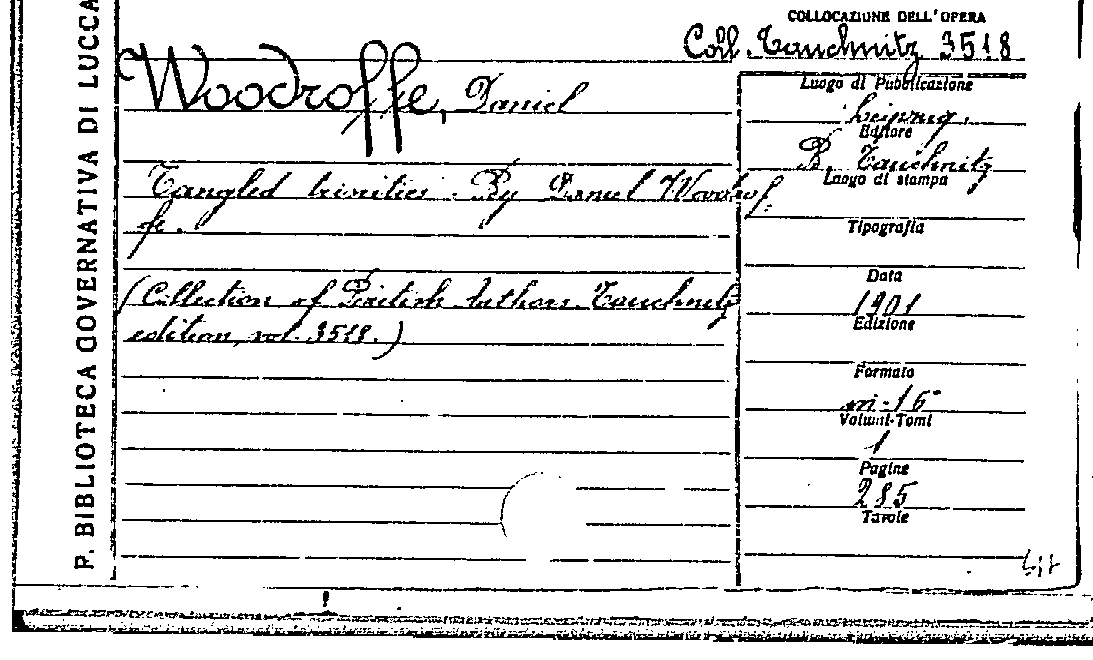 R. BIBLIOTECA GOVERNATIVA DI LUCCA
COLLOCAZIONE DELL'OPERA
Coll. Tauchnitz 3518
Woodroffe, Daniel
Tangled trinities. By Daniel Woodrof-
fe.
(Collection of British Authors Tauchnitz
edition, vol. 3518.)
Luogo di Pubblicazione
Leipzig.
Editore
B. Tauchnitz
Luogo di stampa
Tipografia
Data
1901
Edizione
Formato
in-16°
Volumi-Tomi
1
Pagine
285
Tavole